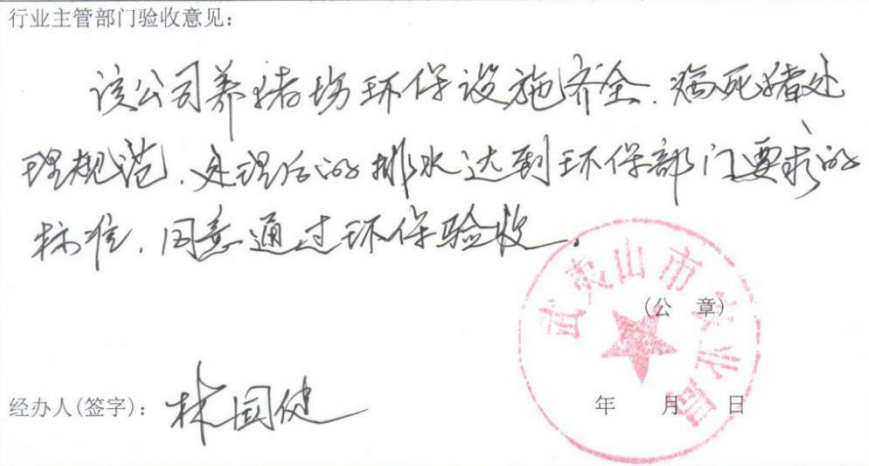 行业主管部门验收意见：
该公司养猪场环保设施齐全，病死猪处
理规范，处理后的排水达到环保部门要求的
标准，同意通过环保验收。
武夷山市农业局
(公 章)
年 月 日
经办人(签字)：林国健